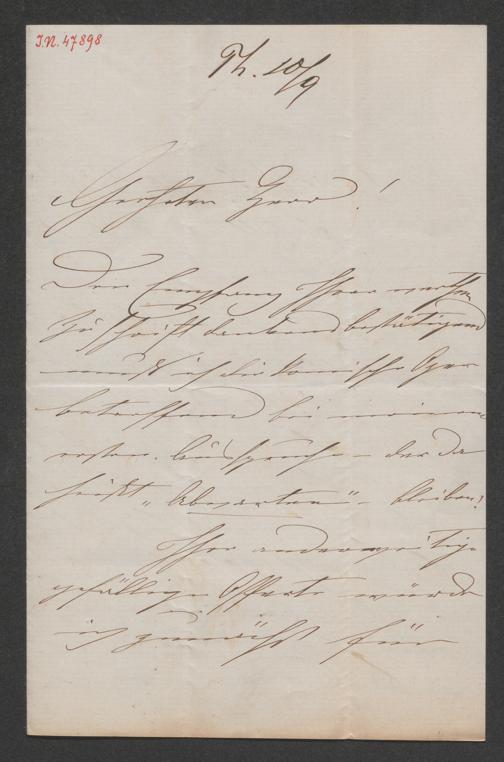 J.N. 47898
Th. 10/9
Geehrter Herr!
Den Empfang Ihrer werthen
Zuschrift dankend bestätigend
muß ich die komische Oper
betreffend bei meinem
ersten Ausspruche – der da
heißt „Abwarten“ – bleiben;
Ihre anderweitige
gefällige Offerte würde
ich zunächst für